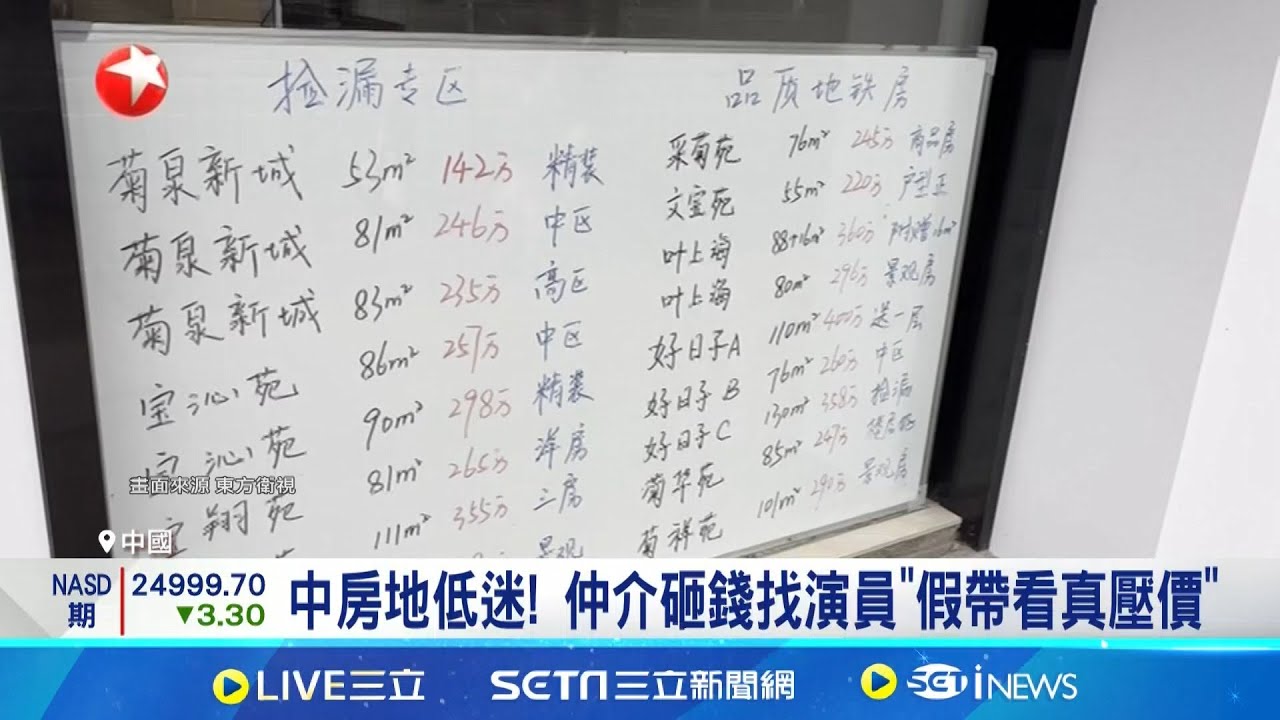 捡漏专区
菊泉新城 53m² 142万 精装
菊泉新城 81m² 246万 中区
菊泉新城 83m² 235万 高区
宝沁苑 86m² 257万 中区
宝沁苑 90m² 298万 精装
宝翔苑 81m² 265万 洋房
111m² 355万 三房
景观
品质地铁房
采菊苑 76m² 245万 商品房
文宝苑 55m² 220万 户型正
叶上海 88+16m² 360万 附赠16m²
叶上海 80m² 296万 景观房
好日子A 110m² 400万 送一层
好日子B 76m² 260万 中区
好日子C 130m² 358万 捡漏
菊华苑 85m² 247万
菊祥苑 101m² 290万 景观房
畫面來源 東方衛視
中國
NASD期 24999.70 ▼3.30
中房地低迷! 仲介砸錢找演員"假帶看真壓價"
LIVE三立 SETN三立新聞網 SETiNEWS